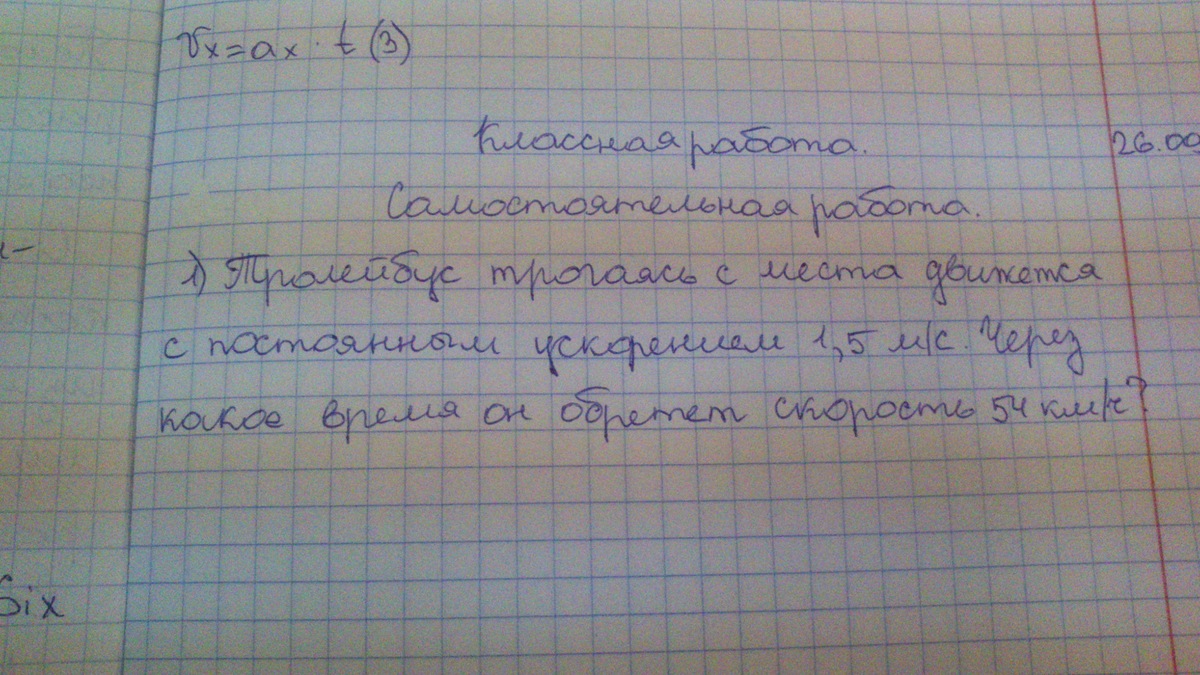 Vx = ax · t (3)
Классная работа. 26.09
Самостоятельная работа.
1) Тролейбус трогаясь с места движется
с постоянным ускорением 1,5 м/с. Через
какое время он обретет скорость 54 км/ч?
Six